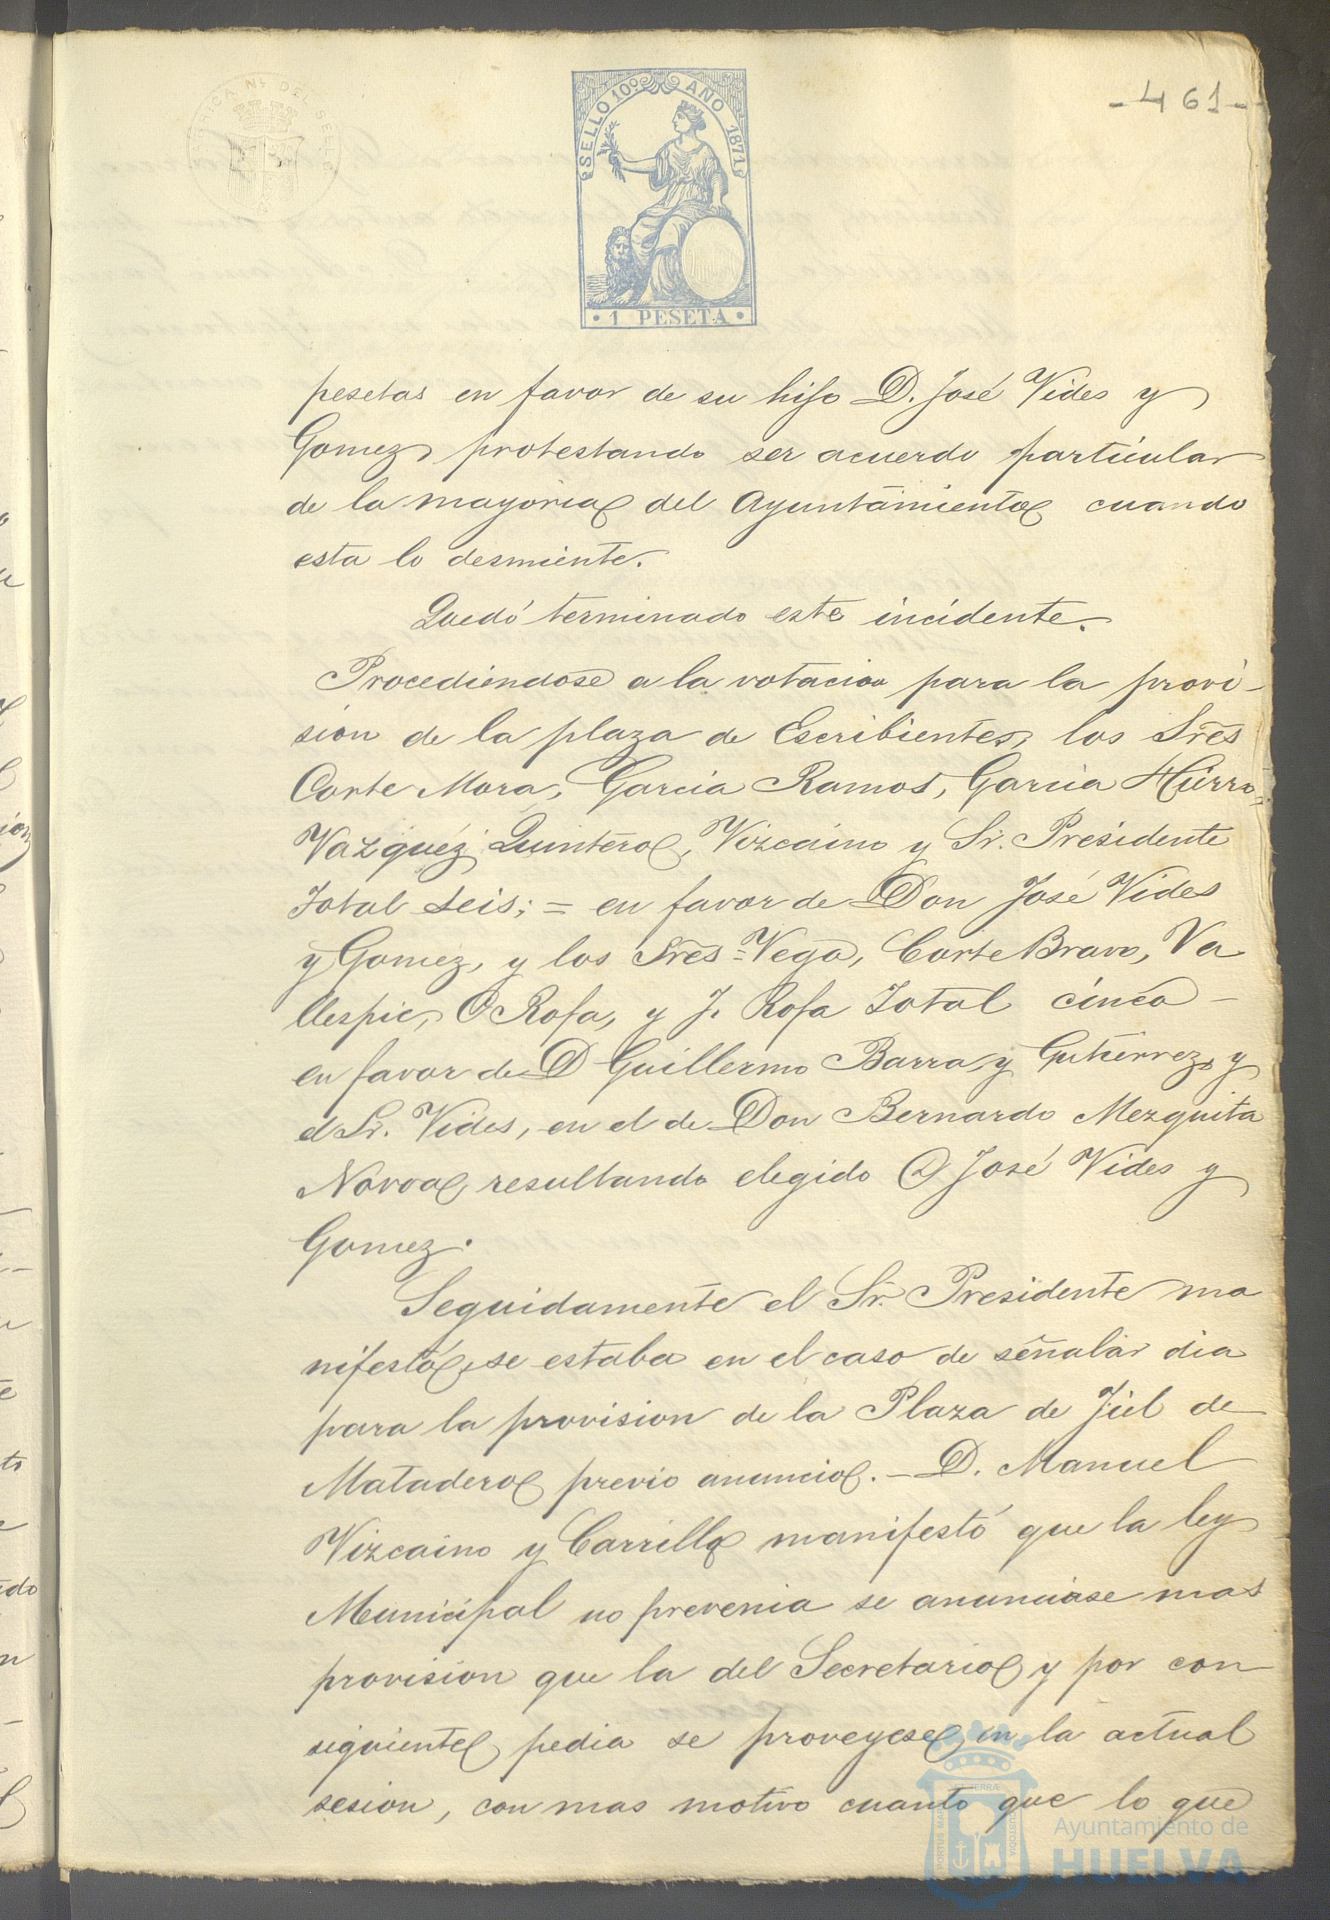 -461-
FABRICA Nl. DEL SELLO
SELLO 10º AÑO 1871
· 1 PESETA ·
pesetas en favor de su hijo D. José Vides y
Gomez, protestando ser acuerdo particular
de la mayoria del Ayuntamiento cuando
esta lo desmiente.
Quedó terminado este incidente.
Procediendose a la votacion para la provi-
sion de la plaza de Escribiente, los Sres
Corte Mora, Garcia Ramos, Garcia Hierro,
Vazquez Quintero, Vizcaino y Sr. Presidente
Total seis; = en favor de Don José Vides
y Gomez, y los Sres = Vega, Corte Bravo, Va
llespir, O Rofa, y J. Rofa Total cinco -
en favor de D Guillermo Barra y Gutierrez, y
el Sr. Vides, en el de Don Bernardo Mezquita
Novoa, resultando elegido D José Vides y
Gomez.
Seguidamente el Sr. Presidente ma
nifestó, se estaba en el caso de señalar dia
para la provision de la Plaza de Fiel de
Matadero previo anuncio. - D. Manuel
Vizcaino y Carrillo manifestó que la ley
Municipal no prevenia se anunciase mas
provision que la del Secretario, y por con
siguiente pedia se proveyese en la actual
sesion, con mas motivo cuanto que lo que
Ayuntamiento de
HUELVA